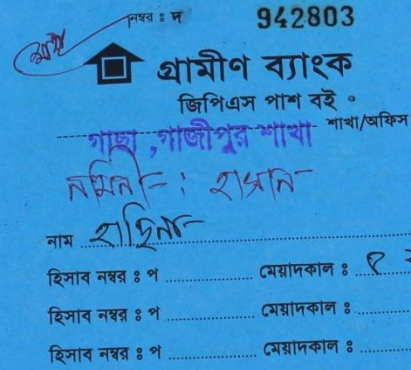 নম্বর ঃ দ 942803
গ্রামীণ ব্যাংক
জিপিএস পাশ বই
গাছা, গাজীপুর শাখা শাখা/অফিস
নমিনী - : হাসান
নাম হাছিনা
হিসাব নম্বর ঃ প .................... মেয়াদকাল ঃ
হিসাব নম্বর ঃ প .................... মেয়াদকাল ঃ ..........
হিসাব নম্বর ঃ প .................... মেয়াদকাল ঃ ..........